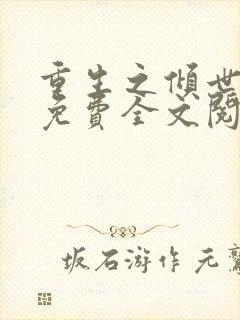 重生之倾世
免費全文閱
坂石游作元